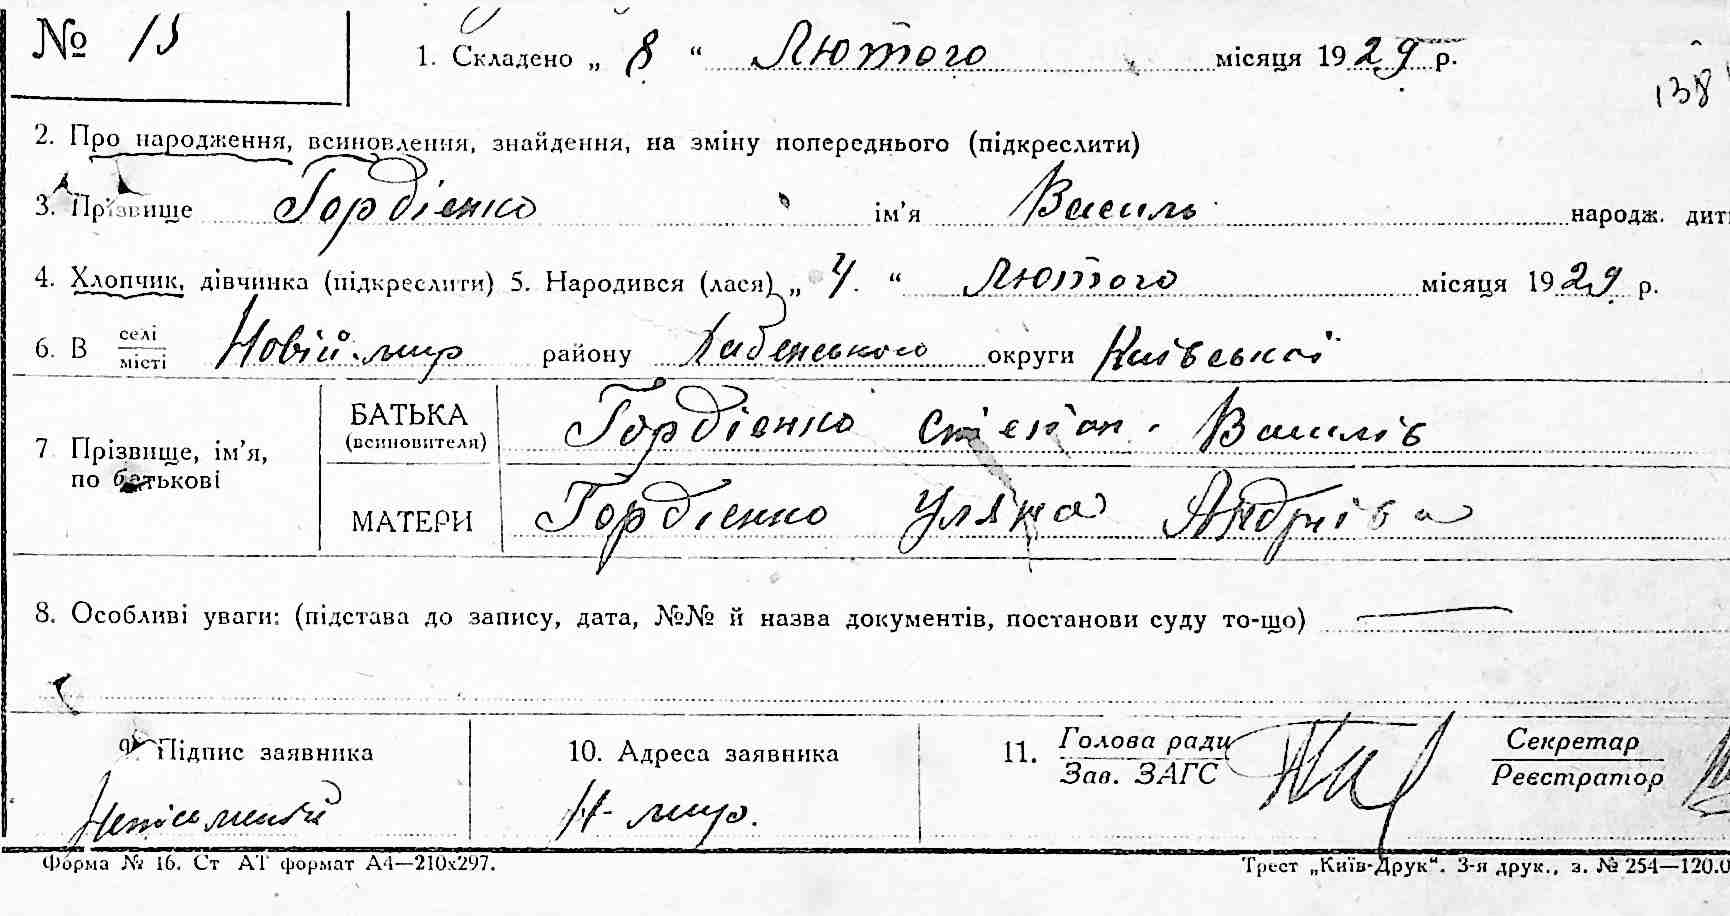 № 13
1. Складено „ 8 “ Лютого місяця 1929 р.
138
2. Про народження, всиновлення, знайдення, на зміну попереднього (підкреслити)
3. Прізвище Гордієнко ім’я Василь народж. дит
4. Хлопчик, дівчинка (підкреслити) 5. Народився (лася) „ 4. “ Лютого місяця 1929 р.
6. В селі місті Новій-мир району Хабенського округи Київської
7 Прізвище, ім’я, по батькові
БАТЬКА (всиновителя) Гордієнко Степан Василів
МАТЕРИ Гордієнко Уляна Андріїва
8. Особливі уваги: (підстава до запису, дата, №№ й назва документів, постанови суду то-що)
9. Підпис заявника 10. Адреса заявника 11. Голова ради Зав. ЗАГС Секретар Реєстратор
Неписьменний Н-мир.
Форма № 16. Ст АТ формат А4—210х297. Трест „Київ-Друк“. 3-я друк., з. № 254—120.0